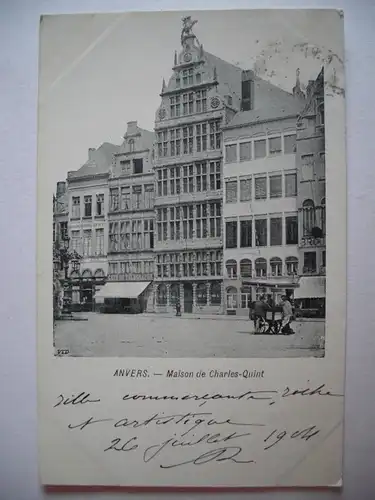 ANVERS. — Maison de Charles-Quint
Ville commerçante, riche
et artistique
26 juillet 1904